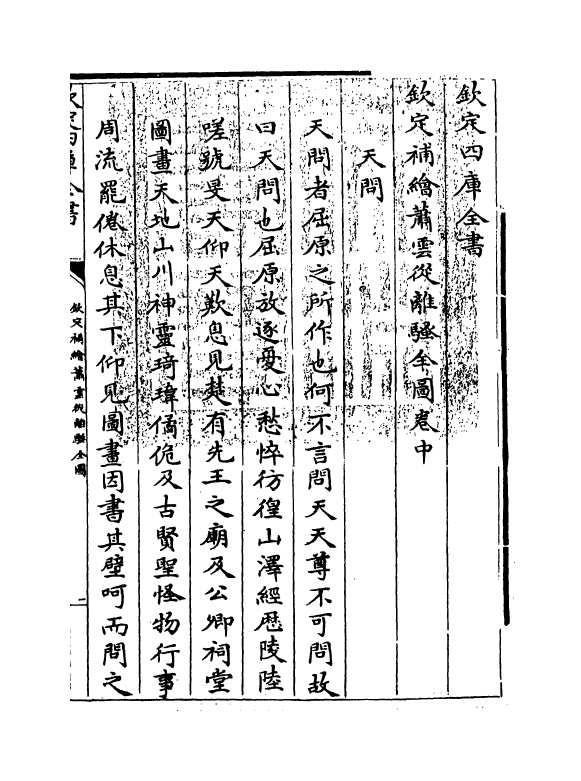 欽定四庫全書
欽定補繪蕭雲從離騷全圖卷中
天問
天問者屈原之所作也何不言問天天尊不可問故
曰天問也屈原放逐憂心愁悴彷徨山澤經歷陵陸
嗟號旻天仰天歎息見楚有先王之廟及公卿祠堂
圖畫天地山川神靈琦瑋僪佹及古賢聖怪物行事
周流罷倦休息其下仰見圖畫因書其壁呵而問之
欽定四庫全書
欽定補繪蕭雲從離騷全圖